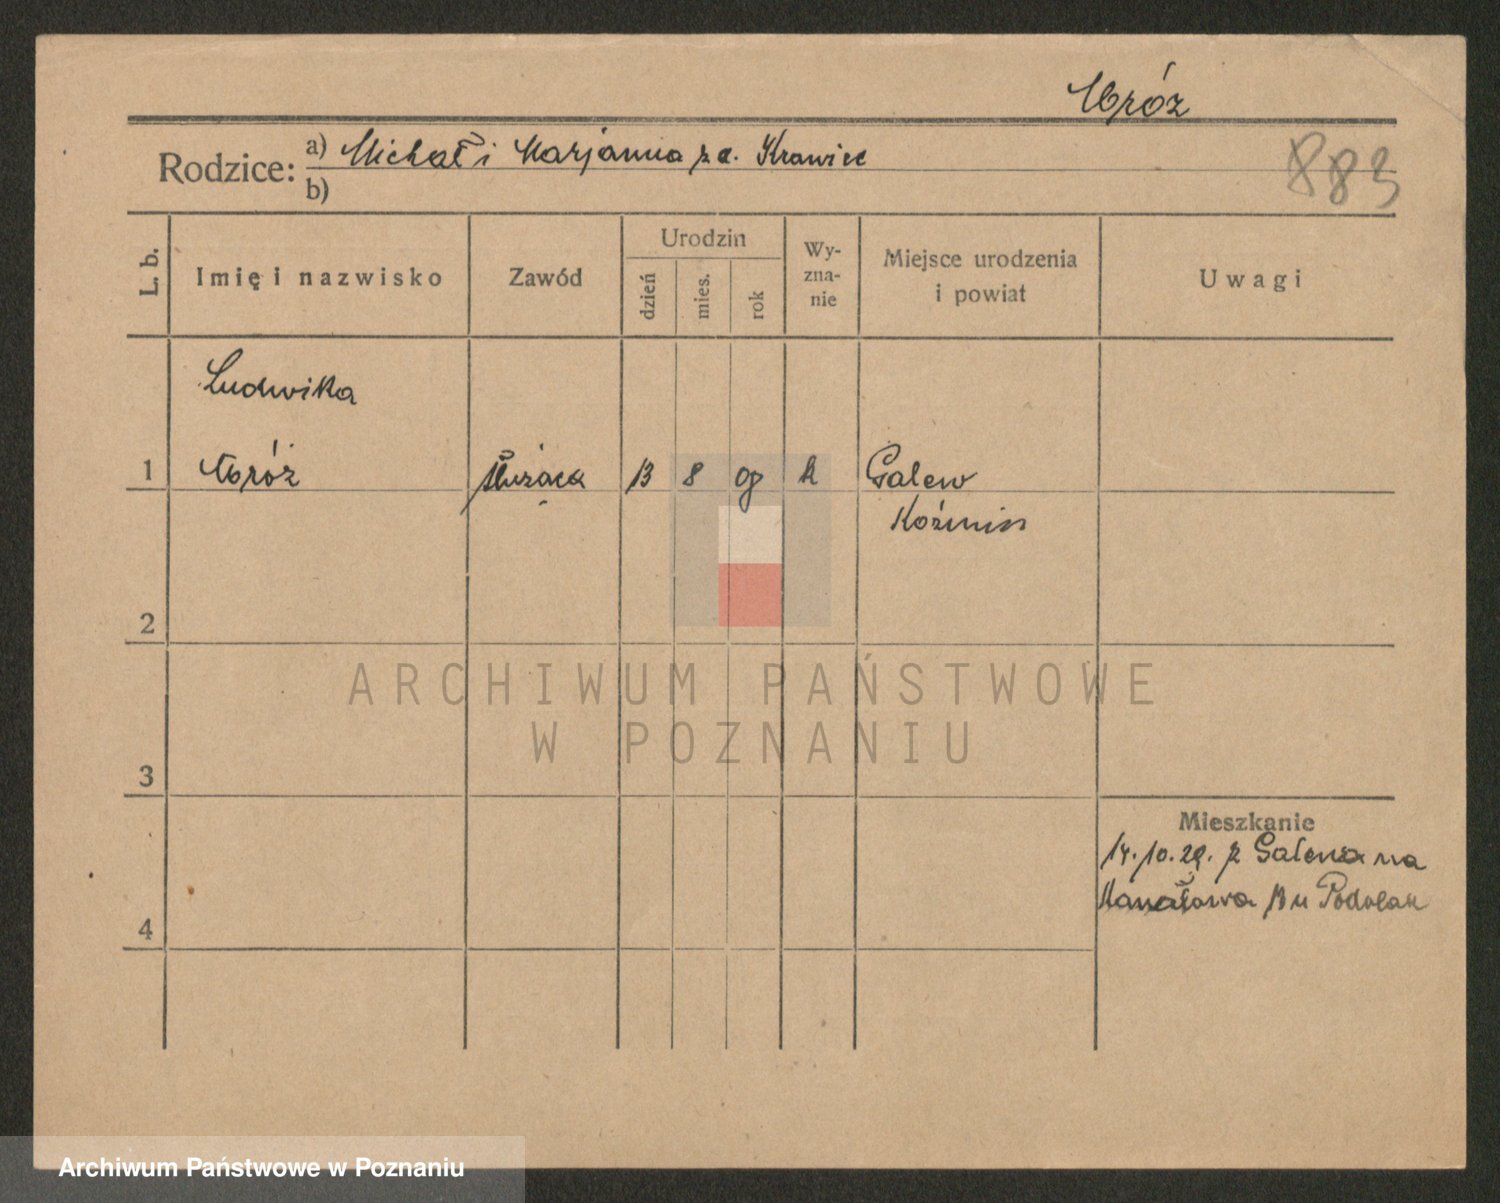 Mróz
Rodzice: a) Michał i Marjanna z d. Krawiec
b)
883
L. b.
Imię i nazwisko
Zawód
Urodzin
dzień
mies.
rok
Wy-
zna-
nie
Miejsce urodzenia
i powiat
Uwagi
Ludwika
1 Mróz służąca 13 8 09 k Galew
Koźmin
2
3
4
Mieszkanie
14.10.29. z Galewa na
Kanałowa 13 u Podolak
ARCHIWUM PAŃSTWOWE
W POZNANIU
Archiwum Państwowe w Poznaniu